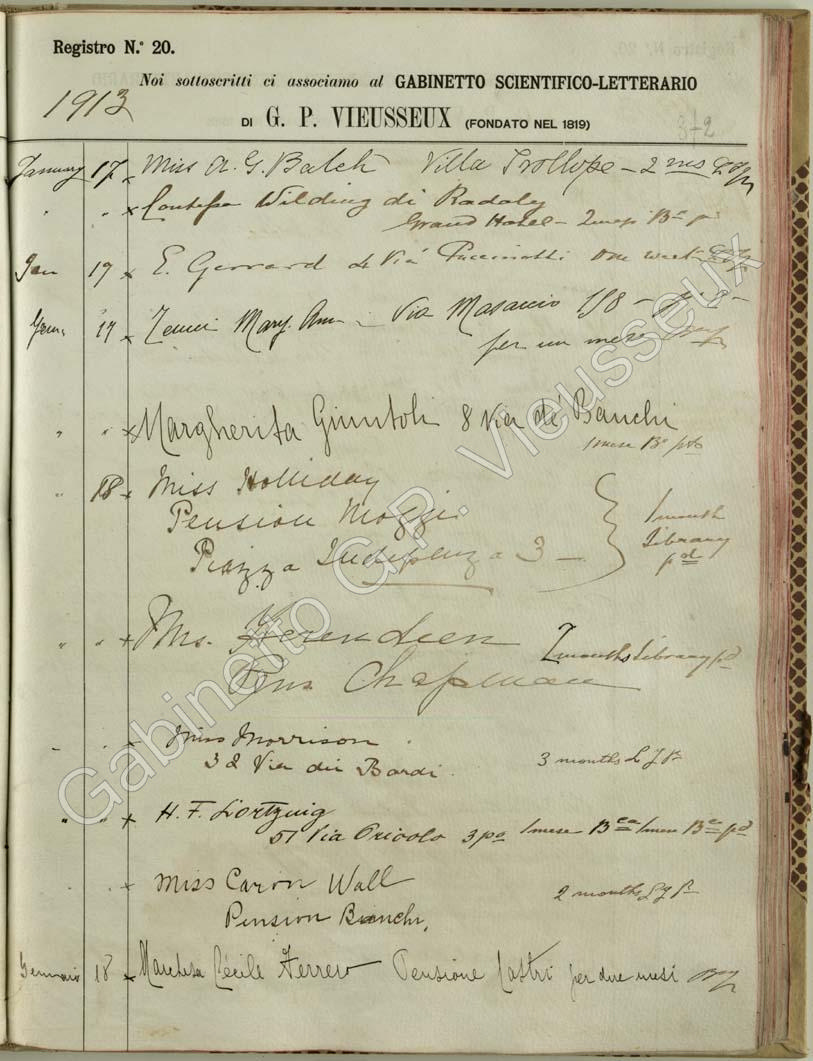 Registro N.° 20.
Noi sottoscritti ci associamo al GABINETTO SCIENTIFICO-LETTERARIO
1913
DI G. P. VIEUSSEUX (FONDATO NEL 1819)
372
January 17 x Miss A. G. Balch Villa Trollope – 2 ms
" " x Contessa Wilding di Radaly
Grand Hotel – 2 mesi Bca pd
Jan 17 x E. Gerrard 4 Via Puccinotti One week
17 x Mary Ann – Via Masaccio 158 –
per un mese
" " x Margherita Giuntoli 8 Via de' Banchi
1 mese Bca pto
" 18 x Miss Holliday
Pension Moggi
Piazza Indipenza 3 –
1 month
Library
pd
" " x Mrs. Herendeen 2 months Library pd
Pens Chapman
" " x Miss Morrison
32 Via dei Bardi. 3 months L
" " x H. F. Liortzinig
51 Via Pricolo 3 po 1 mese Bca 1 mese Bca pd
" " x Miss Caron Wall
2 months
Pension Bianchi,
Gennaio 18 x Marchesa Cécile Ferrero Pensione Castri per due mesi
Gabinetto G.P. Vieusseux